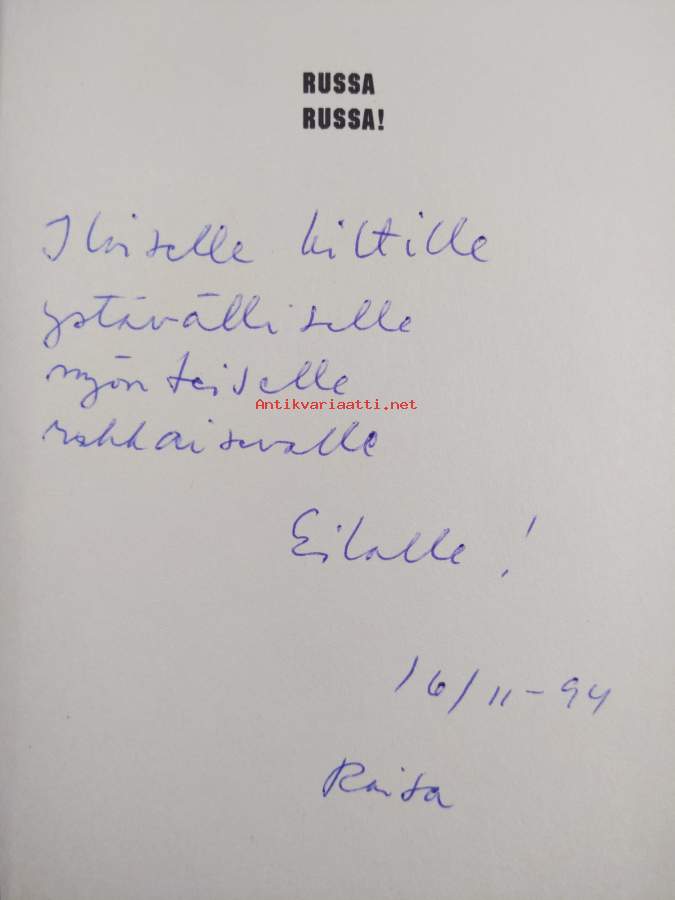 RUSSA
RUSSA!
Iloiselle kiltille
ystävälliselle
myönteiselle
Antikvariaatti.net
rohkaisevalle
Eilalle!
16/11-94
Raisa